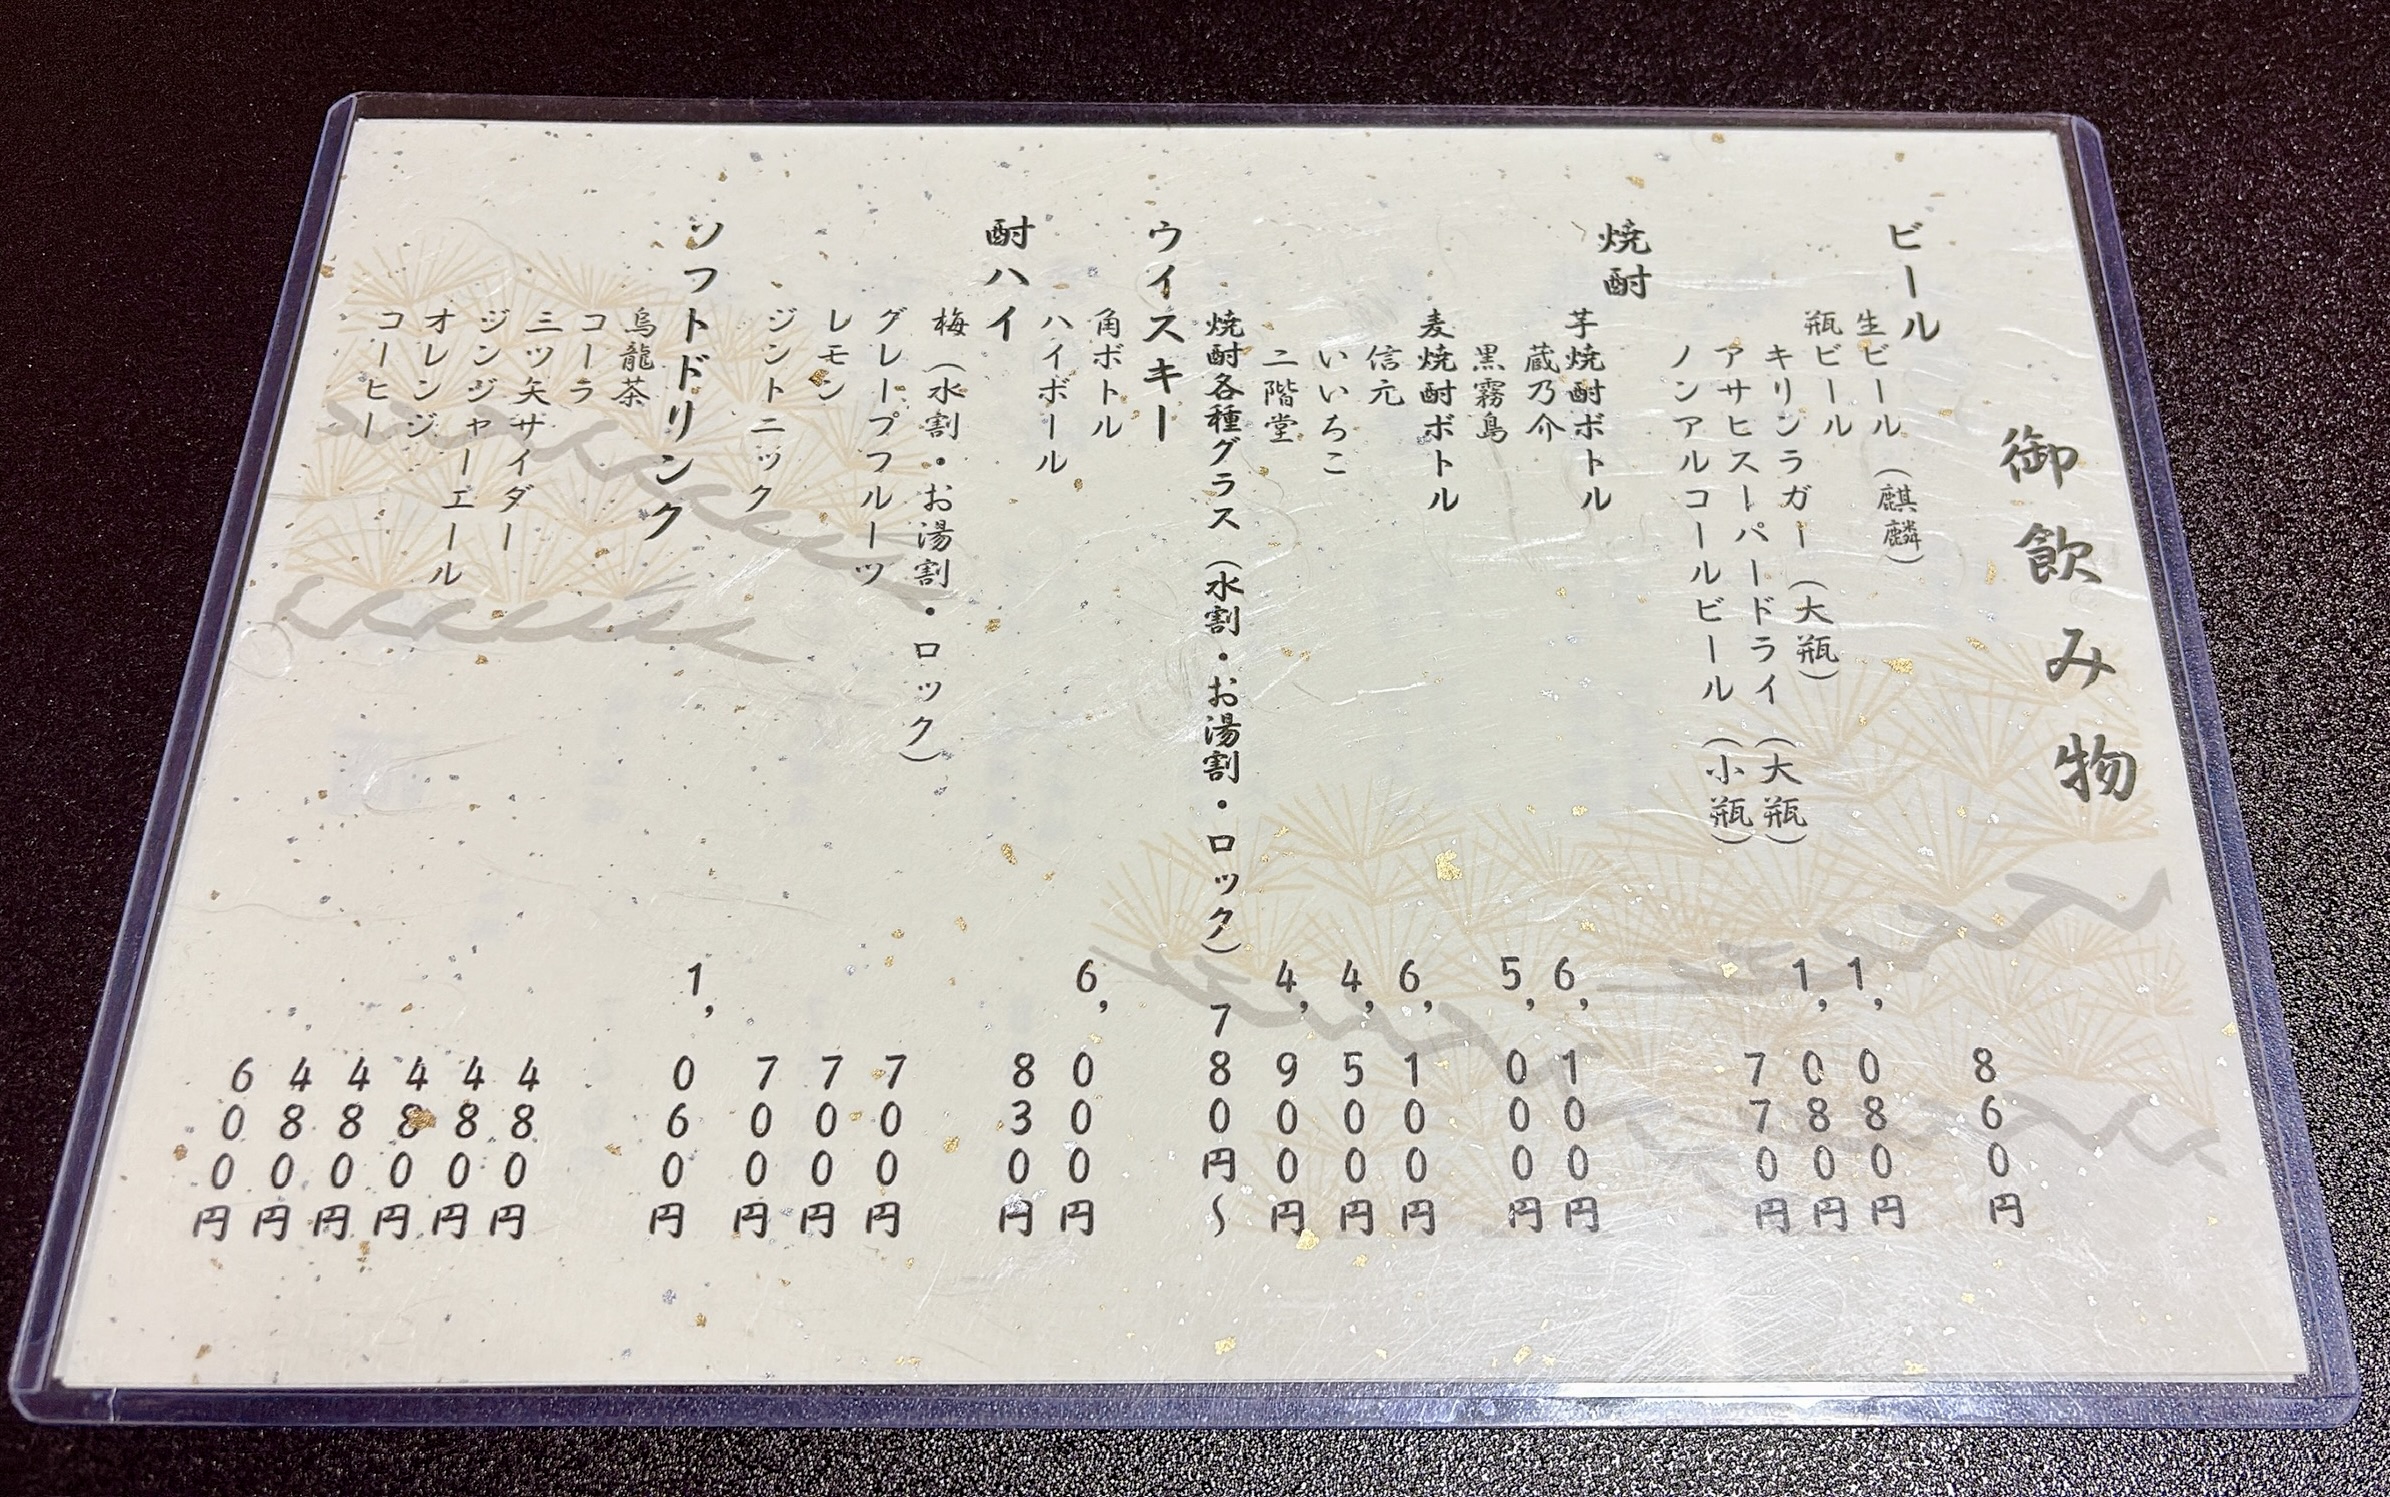 御飲み物
ビール
生ビール（麒麟） 860円
瓶ビール
キリンラガー（大瓶） 1,080円
アサヒスーパードライ（大瓶） 1,080円
ノンアルコールビール（小瓶） 770円
焼酎
芋焼酎ボトル
蔵乃介 6,100円
黒霧島 5,000円
麦焼酎ボトル
信元 6,100円
いいちこ 4,500円
二階堂 4,900円
焼酎各種グラス（水割・お湯割・ロック） 780円～
ウイスキー
角ボトル 6,000円
ハイボール 830円
酎ハイ
梅（水割・お湯割・ロック） 700円
グレープフルーツ 700円
レモン 700円
ジントニック 1,060円
ソフトドリンク
烏龍茶 480円
コーラ 480円
三ツ矢サイダー 480円
ジンジャーエール 480円
オレンジ 480円
コーヒー 600円